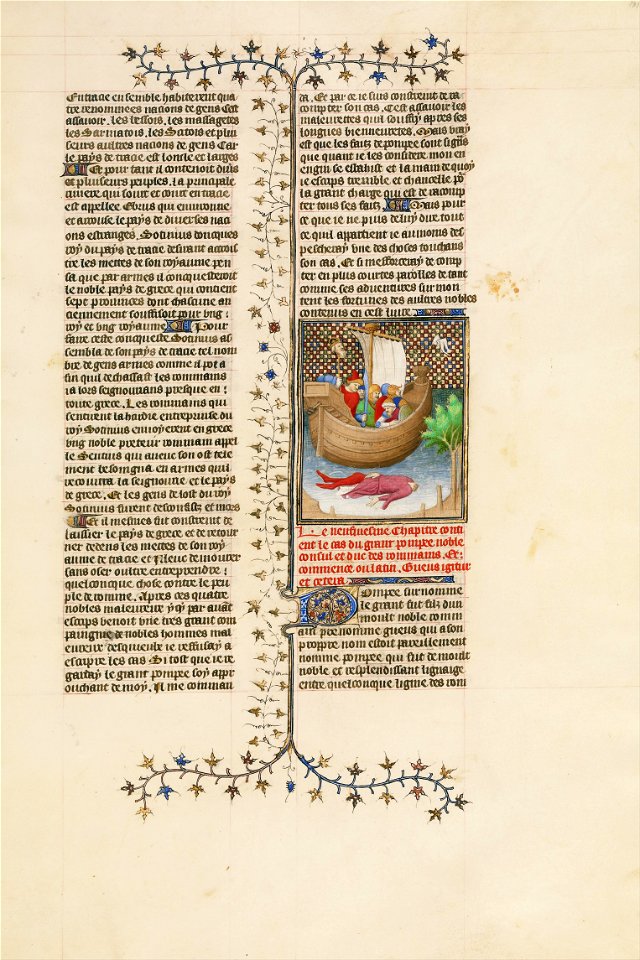 En trace ensemble habiterent qua
tre renommees nacions de gens cest
assauoir. les bessois. les massagetes
les Sarmatois. les Satois et plu
seurs aultres nacions de gens Car
le pays de trace est long le et larges
Et pour tant il contenoit diuers
et pluseurs peuples. la principale
riuiere qui sourt et court en trace
est appellee Ebrus qui enuironne
et arrouse le pays de diuerses naci
ons estranges. Sotinius doncques
roy du pays de trace desirant accrois
tre les mettes de son royaume pen
sa que par armes il conquesteroit
le noble pays de grece qui contient
sept prouinces dont chascune an
ciennement souffisoit pour vng
roy et vng royaume Pour
faire ceste conqueste Sotinius as
sembla de son pays de trace tel nom
bre de gens armes comme il pot a
fin quil dechassast les rommains
ia lors seigneurians presque en
toute grece. Les rommains qui
sentirent la hardie entreprinse du
roy Sotinius enuoyerent en grece
vng noble preteur rommain appel
le Sentius qui auec son ost tele
ment besoingna en armes quil
recouura la seignourie et le pays
de grece. Et les gens de lost du roy
Sotinius furent desconfiz et mors
Et il mesmes fut constreint de
laissier le pays de grece et de retour
ner dedens les mettes de son roy
aume de trace et illeuc demourer
sans oser oultre entreprendre
quelconque chose contre le peu
ple de romme. Apres ces quatre
nobles maleureux
escrips benoit vne tres grant com
paingnie de nobles hommes mal
eureux desquelx ie reffusay a
escripre les cas Si tost que ie re
garday le grant pompee soy appro
ouchant de moy. Il me conuain
da. Et par ce ie suis constreint de ra
compter son cas. Cest assauoir les
maleuretes quil souffry apres ses
longues bieneuretes. Mais vray
est que les fais de pompee sont si grans
que quant ie les considere mon en
engin sesbahist et la main de quoy
ie escrips tremble et chancelle pour
la grant charge qui est de racomp
ter tous ses faitz Mais pour
ce que ie ne puis de luy dire tout
ce quil appartient ie au moins des
pescheray vne des choses touchans
son cas. Et si mefforceray de comp
ter en plus courtes parolles de tant
comme ses aduentures sur mon
tent les fortunes des aultres nobles
contenus en cest liure.
Le neufuiesme Chapitre conti
ent le cas du grant pompee noble
consul et duc des rommains. Et
commence ou latin. Gneus igitur
et cetera
Pompee surnomme
le grant fut filz dun
moult noble romm
ain prenomme gneus qui a son
propre nom estoit pareillement
nomme pompee qui fut de moult
noble et resplendissant lignaige
entre quelconque ligne des rom